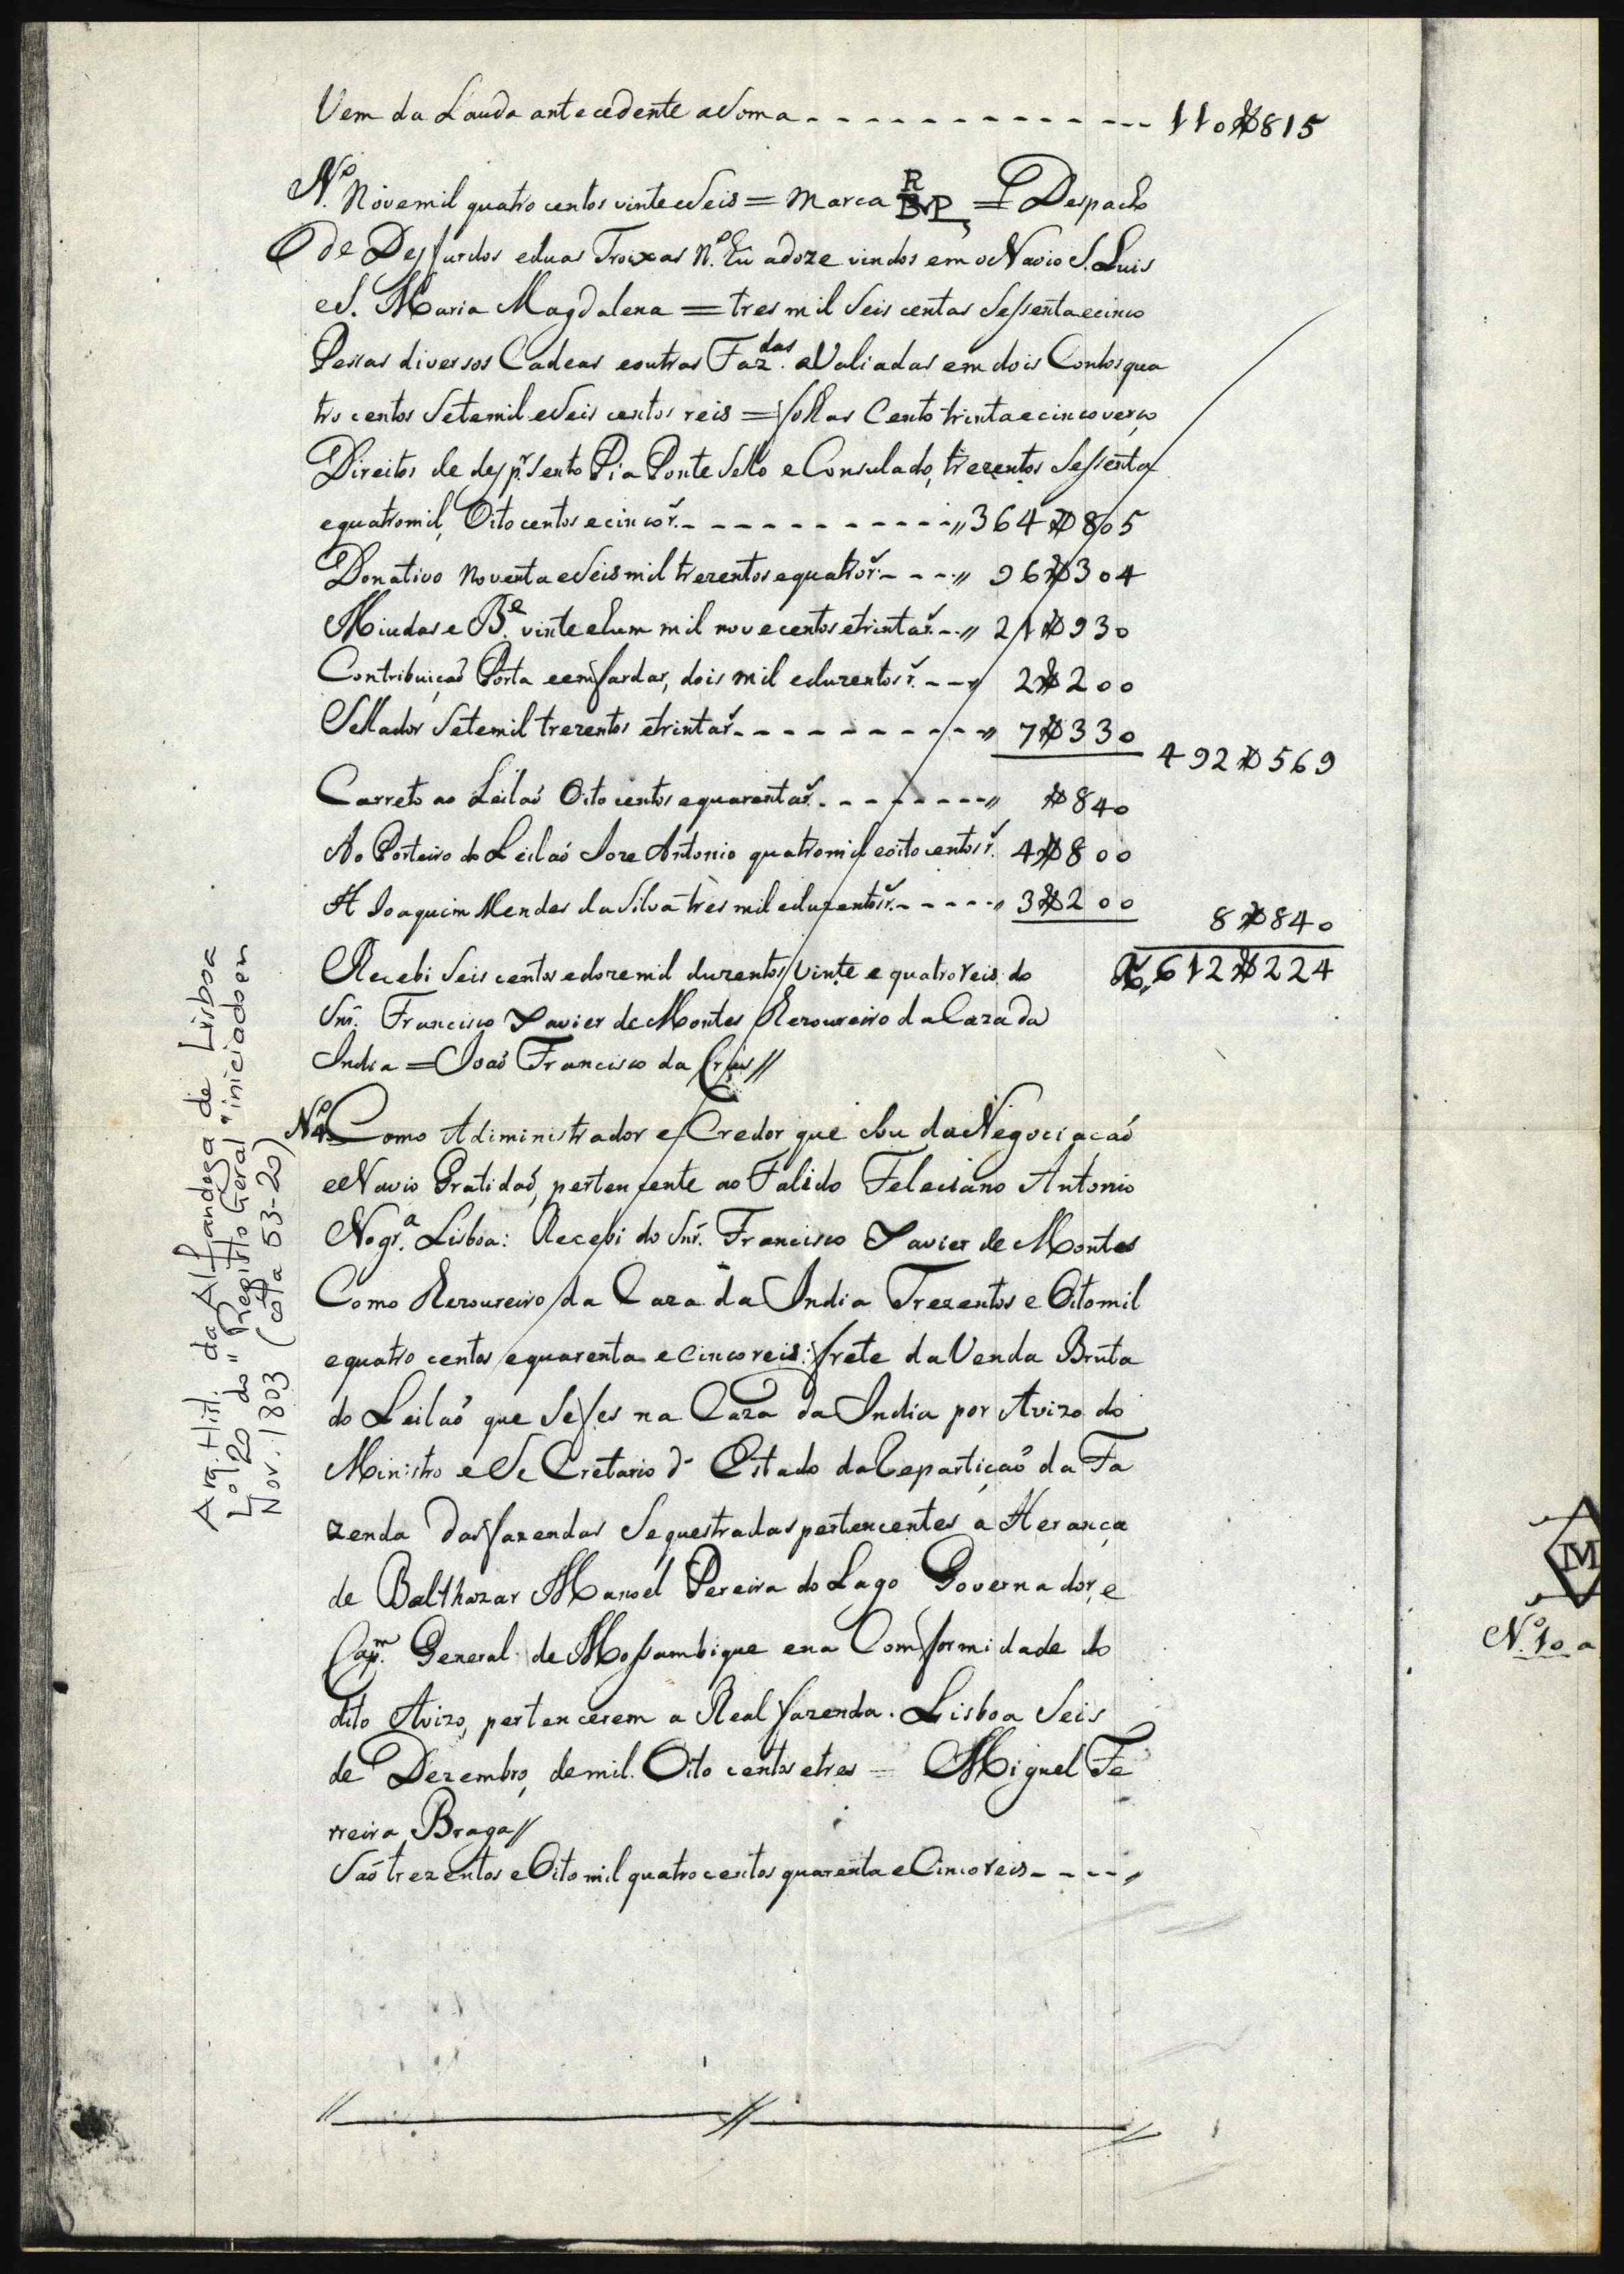 Vem da Lauda antecedente aSoma - - - - - - - - - - - - 110$815
N.º Novemil quatro centos vinteeSeis = Marca R BvP = Despacho
de Desfardos eduas Troixas N.º hũ adoze vindos em oNavio S. Luis
eS. Maria Magdalena = tres mil Seis centas Sessentaecinco
Pessas diversos Cadeas eoutras Faz.das aValiadas em dois Contos qua
tro centos Setemil eSeis centos reis = folhas Cento trintaecinco verço
Direitos de desp.r Sento Pia Ponte Sello e Consulado, trezentos Sessenta
equatromil, Oitocentos ecinco r.s - - - - - - - - - - " 364$805
Donativo Noventa eSeis mil trezentos equatro r.s - - - " 96$304
Miudas e B.e vinte ehum mil novecentos etrinta r.s - - " 21$930
Contribuiçaõ Porta eemfardar, dois mil eduzentos r.s - - " 2$200
Sellador Setemil trezentos etrinta r.s - - - - - - - - - " 7$330
492$569
Carreto ao Leilaõ Oito centos equarenta r.s - - - - - - - " $840
Ao Porteiro do Leilaõ Joze Antonio quatromil eoitocentos r.s 4$800
A Joaquim Mendes da Silva tres mil eduzentos r.s - - - - " 3$200
8$840
Recebi Seis centos edoze mil duzentos Vinte e quatro reis do R.s 612$224
Snr. Francisco Xavier de Montes Thezoureiro da Caza da
India = Joaõ Francisco da Crus //
N.º 4 Como Adiministrador e Credor que Sou da Negociacaõ
eNavio Gratidaõ, pertencente ao Falido Feleciano Antonio
Nogr.ª Lisboa: Recebi do Snr. Francisco Xavier de Montes
Como Thezoureiro da Caza da India Trezentos e Oitomil
equatro centos equarenta e cinco reis: frete da Venda Bruta
do Leilaõ que Se fes na Caza da India por Avizo do
Ministro e SeCretario d'Estado da Repartiçaõ da Fa
zenda das fazendas Sequestradas pertencentes a Herança
de Balthazar Manoel Pereira do Lago Governador, e
Cap.m General de Mossambique ena Comformidade do
dito Avizo, pertencerem a Real fazenda. Lisboa Seis
de Dezembro, demil. Oito centos etres = Miguel Fe
rreira Braga //
Saõ trezentos e Oito mil quatrocentos quarenta e Cinco reis - - - - "
Arq. Hist. da Alfandega de Lisboa
Lº 20 do "Registo Geral" iniciado em
Nov. 1803 (cota 53-20)
M
N.º 10 a